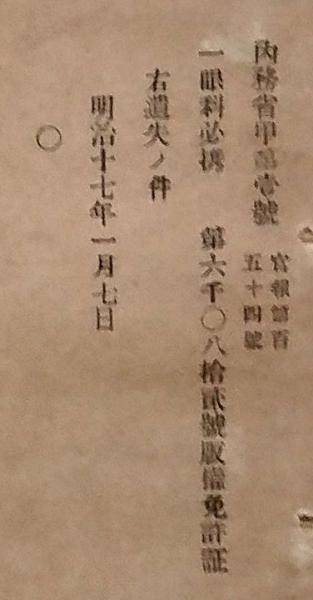 內務省甲第壹號
官報第百
五十四號
一眼科必携 第六千〇八拾貳號版權免許証
右遺失ノ件
明治十七年一月七日
〇